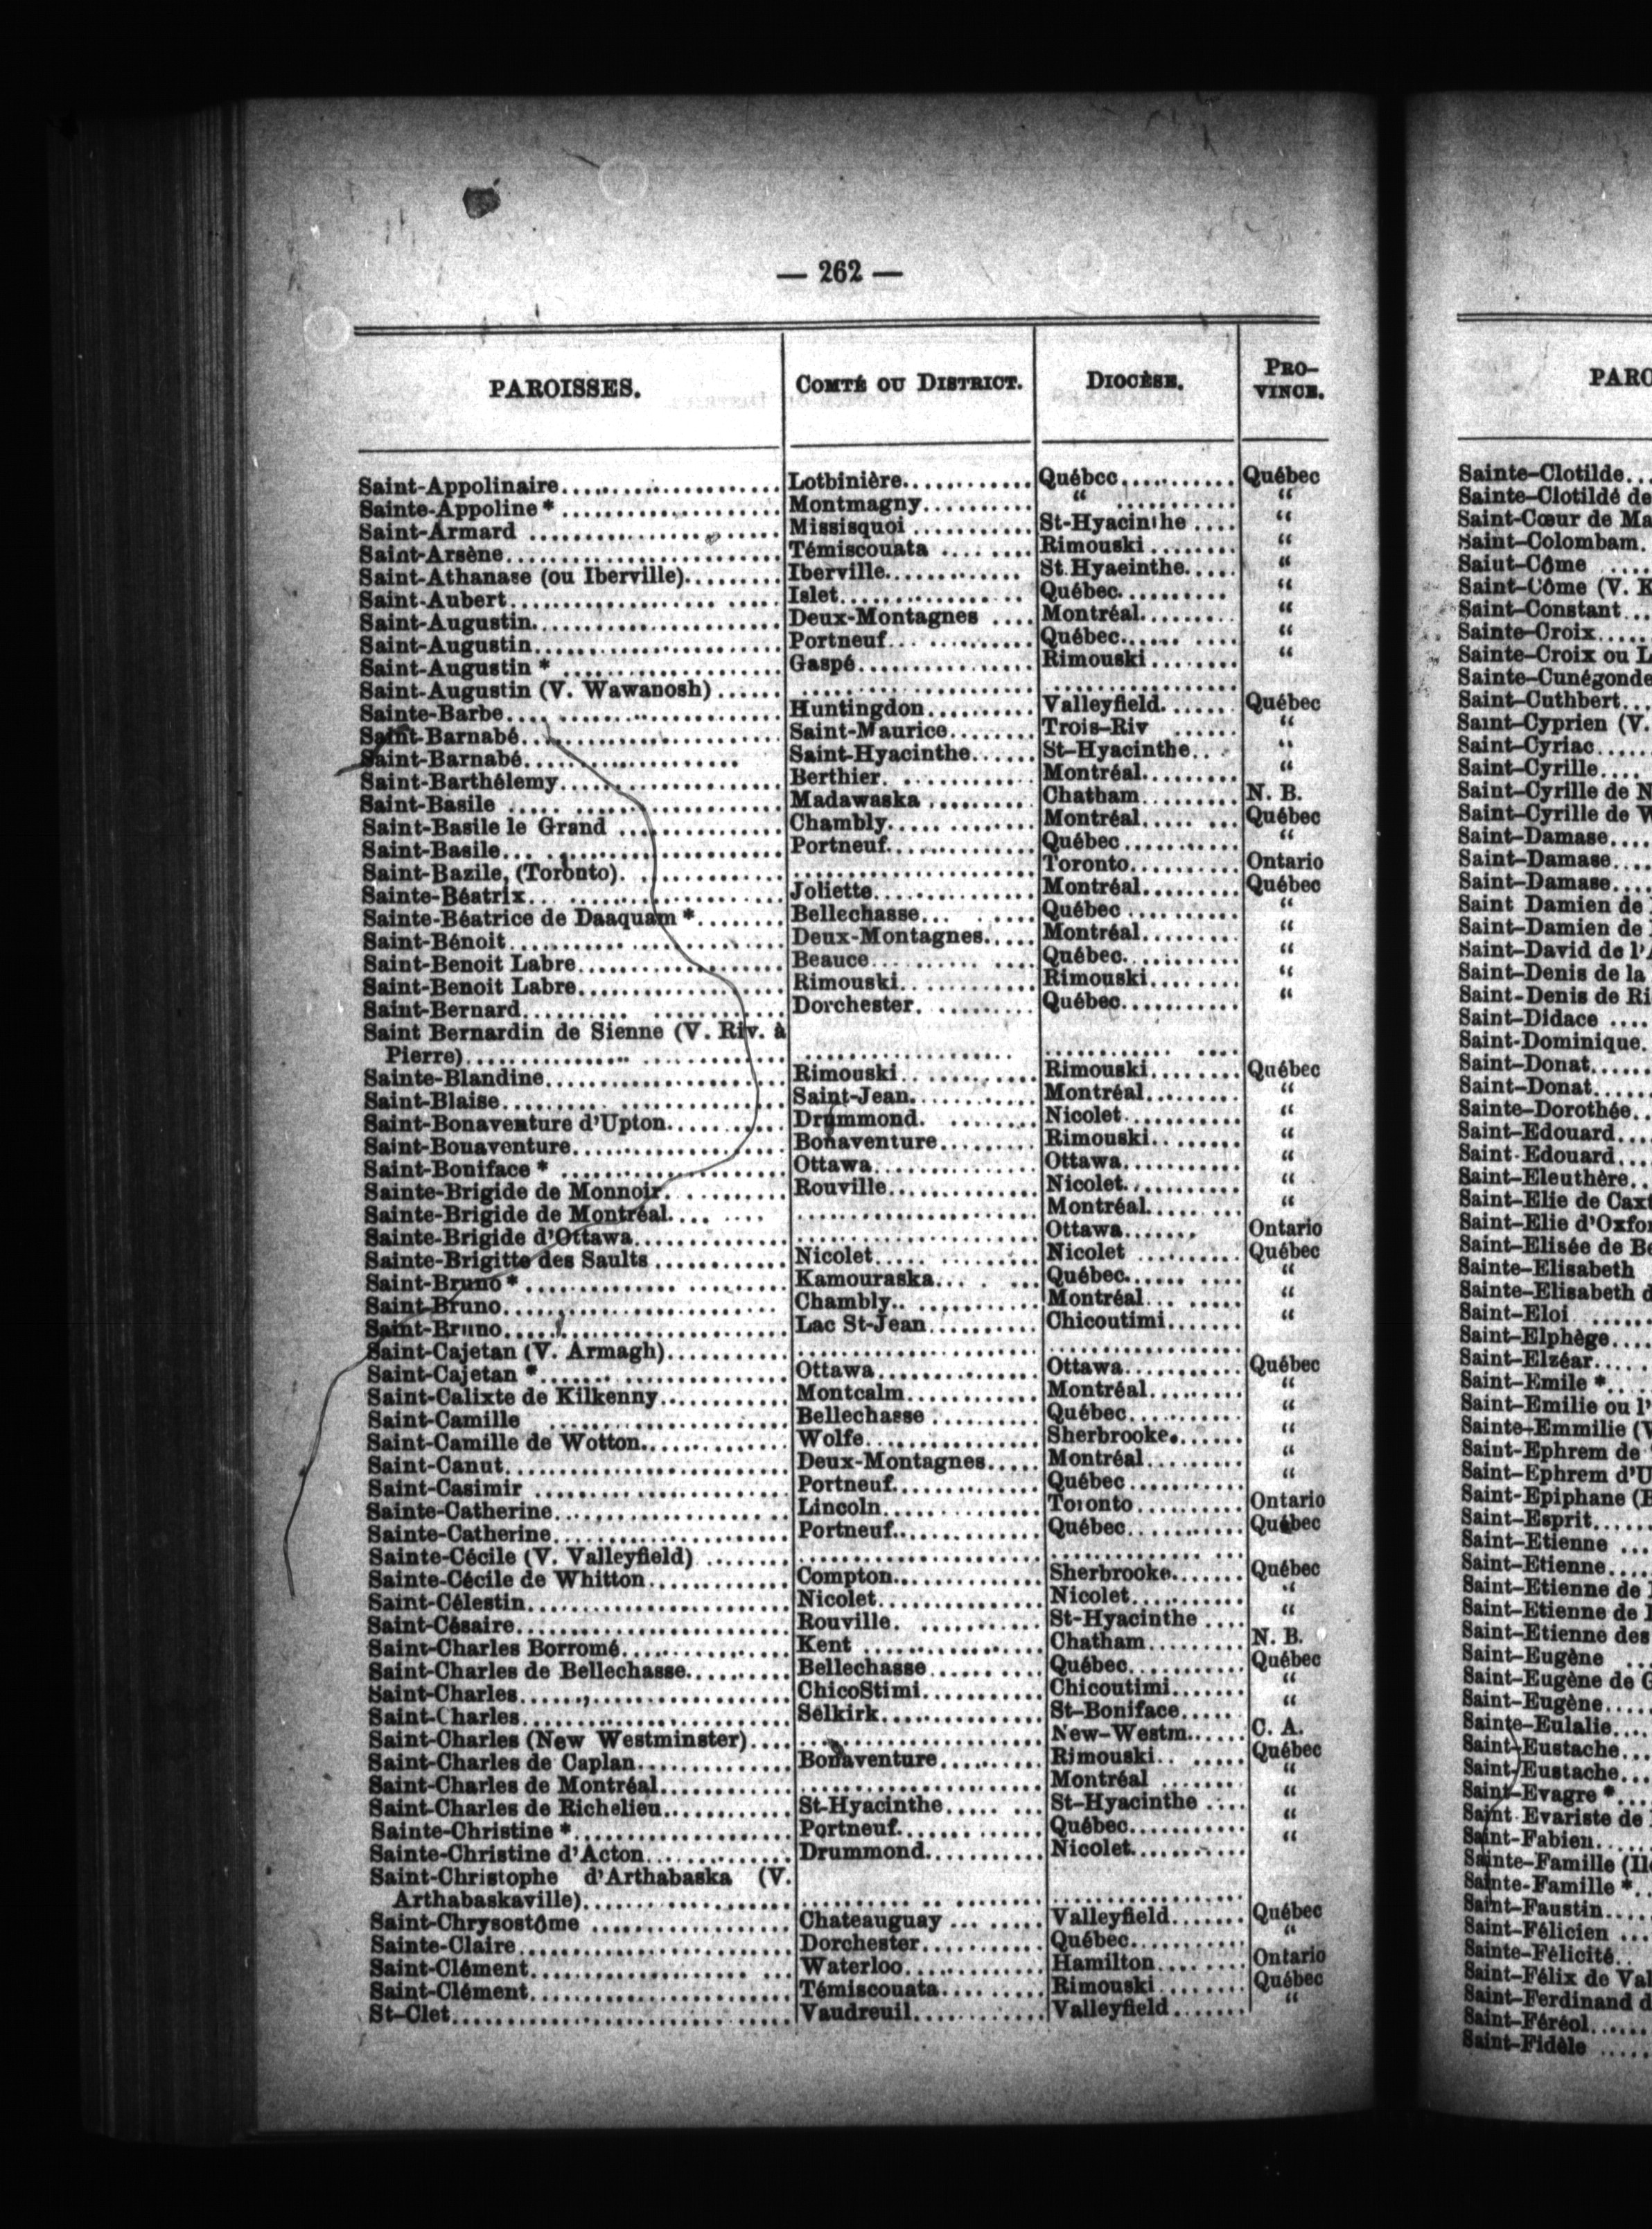 — 262 —
PAROISSES. COMTÉ OU DISTRICT. DIOCÈSE. PRO-
VINCE.
Saint-Appolinaire Lotbinière Québec Québec
Sainte-Appoline * Montmagny “ “
Saint-Armard Missisquoi St-Hyacinthe “
Saint-Arsène Témiscouata Rimouski “
Saint-Athanase (ou Iberville) Iberville St.Hyaeinthe “
Saint-Aubert Islet Québec “
Saint-Augustin Deux-Montagnes Montréal “
Saint-Augustin Portneuf Québec “
Saint-Augustin * Gaspé Rimouski “
Saint-Augustin (V. Wawanosh)
Sainte-Barbe Huntingdon Valleyfield Québec
Saint-Barnabé Saint-Maurice Trois-Riv “
Saint-Barnabé Saint-Hyacinthe St-Hyacinthe “
Saint-Barthélemy Berthier Montréal “
Saint-Basile Madawaska Chatham N. B.
Saint-Basile le Grand Chambly Montréal Québec
Saint-Basile Portneuf Québec “
Saint-Bazile, (Toronto) Toronto Ontario
Sainte-Béatrix Joliette Montréal Québec
Sainte-Béatrice de Daaquam * Bellechasse Québec “
Saint-Bénoit Deux-Montagnes Montréal “
Saint-Benoit Labre Beauce Québec “
Saint-Benoit Labre Rimouski Rimouski “
Saint-Bernard Dorchester Québec “
Saint Bernardin de Sienne (V. Riv. à
Pierre)
Sainte-Blandine Rimouski Rimouski Québec
Saint-Blaise Saint-Jean Montréal “
Saint-Bonaventure d'Upton Drummond Nicolet “
Saint-Bonaventure Bonaventure Rimouski “
Saint-Boniface * Ottawa Ottawa “
Sainte-Brigide de Monnoir Rouville Nicolet “
Sainte-Brigide de Montréal Montréal “
Sainte-Brigide d'Ottawa Ottawa Ontario
Sainte-Brigitte des Saults Nicolet Nicolet Québec
Saint-Bruno * Kamouraska Québec “
Saint-Bruno Chambly Montréal “
Saint-Bruno Lac St-Jean Chicoutimi “
Saint-Cajetan (V. Armagh)
Saint-Cajetan * Ottawa Ottawa Québec
Saint-Calixte de Kilkenny Montcalm Montréal “
Saint-Camille Bellechasse Québec “
Saint-Camille de Wotton Wolfe Sherbrooke “
Saint-Canut Deux-Montagnes Montréal “
Saint-Casimir Portneuf Québec “
Sainte-Catherine Lincoln Toronto Ontario
Sainte-Catherine Portneuf Québec Québec
Sainte-Cécile (V. Valleyfield)
Sainte-Cécile de Whitton Compton Sherbrooke Québec
Saint-Célestin Nicolet Nicolet “
Saint-Césaire Rouville St-Hyacinthe “
Saint-Charles Borromé Kent Chatham N. B.
Saint-Charles de Bellechasse Bellechasse Québec Québec
Saint-Charles ChicoStimi Chicoutimi “
Saint-Charles Selkirk St-Boniface “
Saint-Charles (New Westminster) New-Westm C. A.
Saint-Charles de Caplan Bonaventure Rimouski Québec
Saint-Charles de Montréal Montréal “
Saint-Charles de Richelieu St-Hyacinthe St-Hyacinthe “
Sainte-Christine * Portneuf Québec “
Sainte-Christine d'Acton Drummond Nicolet “
Saint-Christophe d'Arthabaska (V.
Arthabaskaville)
Saint-Chrysostôme Chateauguay Valleyfield Québec
Sainte-Claire Dorchester Québec “
Saint-Clément Waterloo Hamilton Ontario
Saint-Clément Témiscouata Rimouski Québec
St-Clet Vaudreuil Valleyfield “
PARO
Sainte-Clotilde
Sainte-Clotildé de
Saint-Cœur de Ma
Saint-Colombam
Saiut-Côme
Saint-Côme (V. K
Saint-Constant
Sainte-Croix
Sainte-Croix ou L
Sainte-Cunégonde
Saint-Cuthbert
Saint-Cyprien (V.
Saint-Cyriac
Saint-Cyrille
Saint-Cyrille de N
Saint-Cyrille de W
Saint-Damase
Saint-Damase
Saint-Damase
Saint Damien de
Saint-Damien de
Saint-David de l'A
Saint-Denis de la
Saint-Denis de Ri
Saint-Didace
Saint-Dominique
Saint-Donat
Saint-Donat
Sainte-Dorothée
Saint-Edouard
Saint-Edouard
Saint-Eleuthère
Saint-Elie de Caxt
Saint-Elie d'Oxfor
Saint-Elisée de Be
Sainte-Elisabeth
Sainte-Elisabeth d
Saint-Eloi
Saint-Elphège
Saint-Elzéar
Saint-Emile *
Saint-Emilie ou l'
Sainte-Emmilie (V
Saint-Ephrem de
Saint-Ephrem d'U
Saint-Epiphane (
Saint-Esprit
Saint-Etienne
Saint-Etienne
Saint-Etienne de
Saint-Etienne de
Saint-Etienne des
Saint-Eugène
Saint-Eugène de G
Saint-Eugène
Sainte-Eulalie
Saint-Eustache
Saint-Eustache
Saint-Evagre *
Saint Evariste de
Saint-Fabien
Sainte-Famille (Ile
Sainte-Famille *
Saint-Faustin
Saint-Félicien
Sainte-Félicité
Saint-Félix de Val
Saint-Ferdinand d
Saint-Féréol
Saint-Fidèle